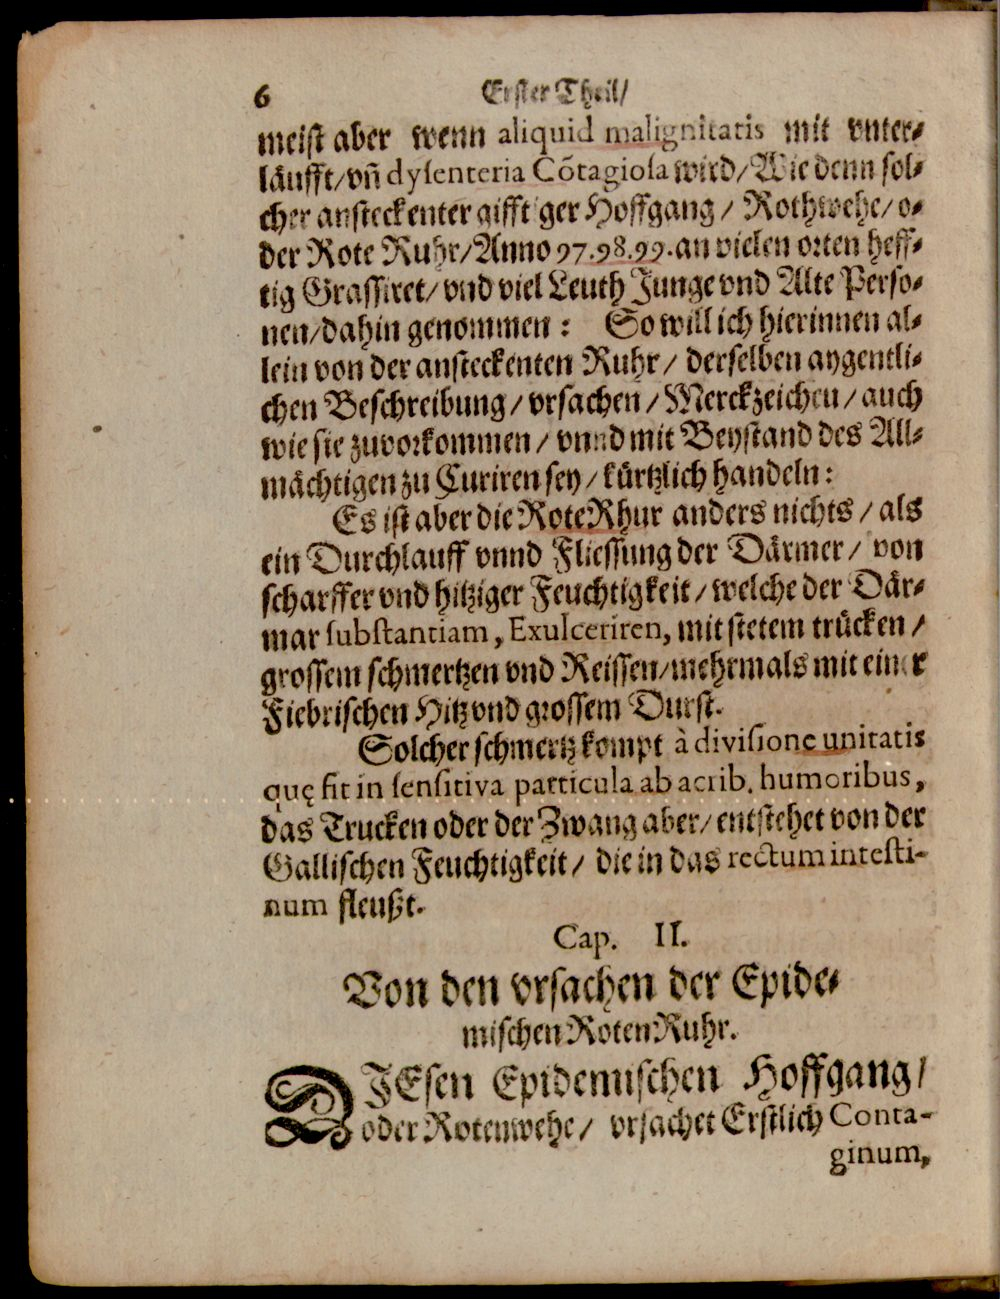 6 Erster Theil/
meist aber wenn aliquid malignitatis mit vnter⸗
läufft/vñ dysenteria Cõtagiosa wird/Wie denn sol⸗
cher ansteckenter gifftiger Hoffgang/ Rothwehe/ o⸗
der Rote Ruhr/Anno 97.98.99.an vielen orten heff⸗
tig Grassiret/ vnd viel Leuth Junge vnd Alte Perso⸗
nen/dahin genommen: So will ich hierinnen al⸗
lein von der ansteckenten Ruhr/ derselben aygentli⸗
chen Beschreibung/vrsachen/Merckzeichen/auch
wie sie zuvorkommen/ vnnd mit Beystand des All⸗
mächtigen zu Curiren sey/kürtzlich handeln:
Es ist aber die Rote Rhur anders nichts/als
ein Durchlauff vnnd Fliessung der Därmer/ von
scharffer vnd hitziger Feuchtigkeit/welche der Där⸗
mar substantiam, Exulceriren, mit stetem trücken/
grossem schmertzen vnd Reissen/mehrmals mit einer
Fiebrischen Hitz vnd grossem Durst.
Solcher schmertz kompt à divisione unitatis
quę fit in sensitiva particula ab acrib. humoribus,
das Trucken oder der Zwang aber/entstehet von der
Gallischen Feuchtigkeit/ die in das rectum intesti-
num fleußt.
Cap. II.
Von den vrsachen der Epide⸗
mischen Roten Ruhr.
DIEsen Epidemischen Hoffgang/
oder Rotenwehe/ vrsachet Erstlich Conta-
ginum,